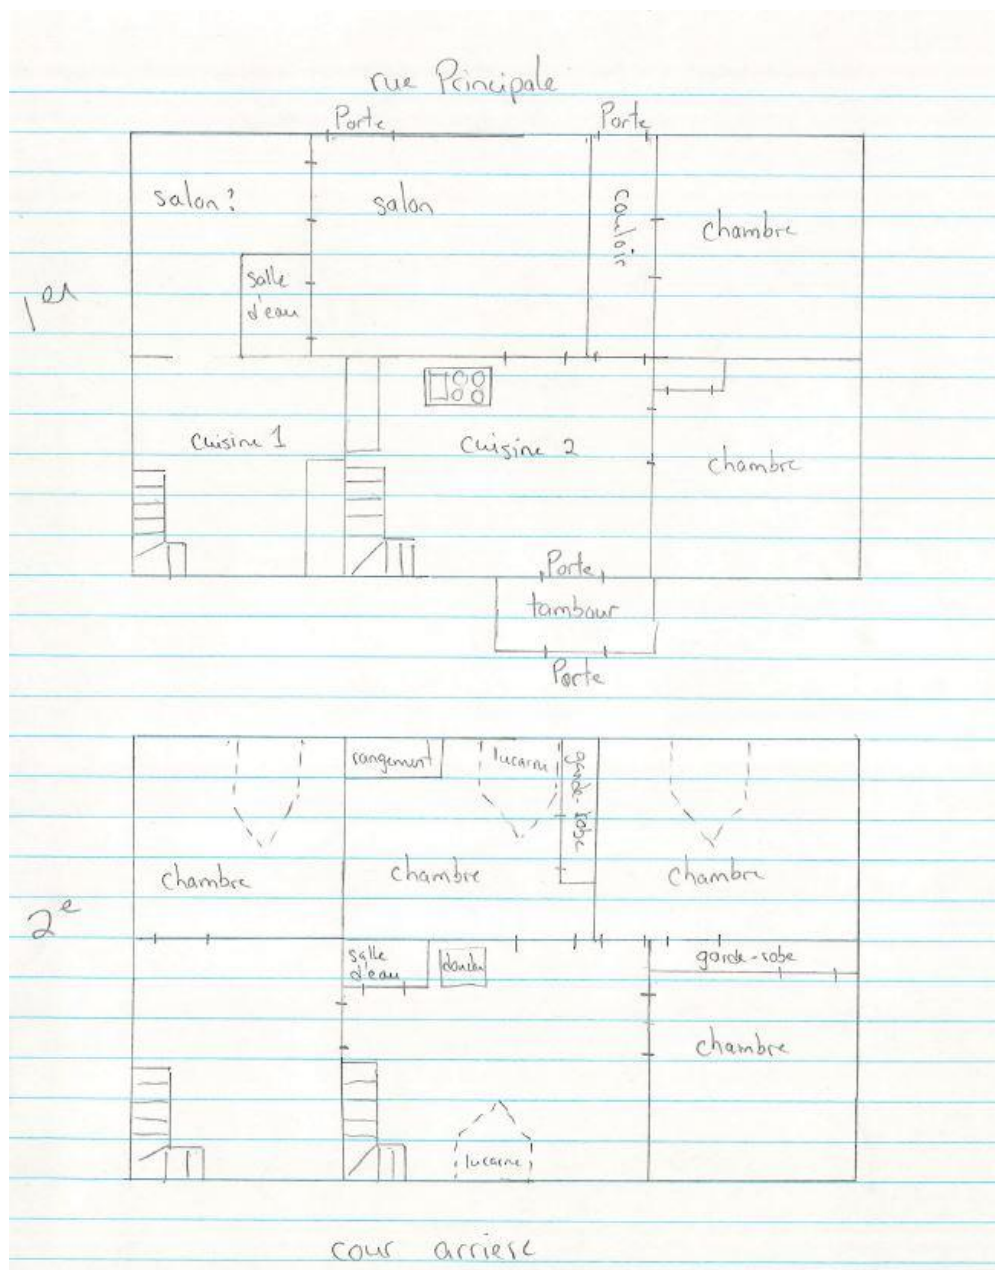 rue Principale
Porte
Porte
salon?
salon
couloir
chambre
salle
d'eau
1er
cuisine 1
cuisine 2
chambre
Porte
tambour
Porte
rangement
lucarne
garde-robe
chambre
chambre
chambre
2e
salle
d'eau
douche
garde-robe
chambre
lucarne
cour arriere